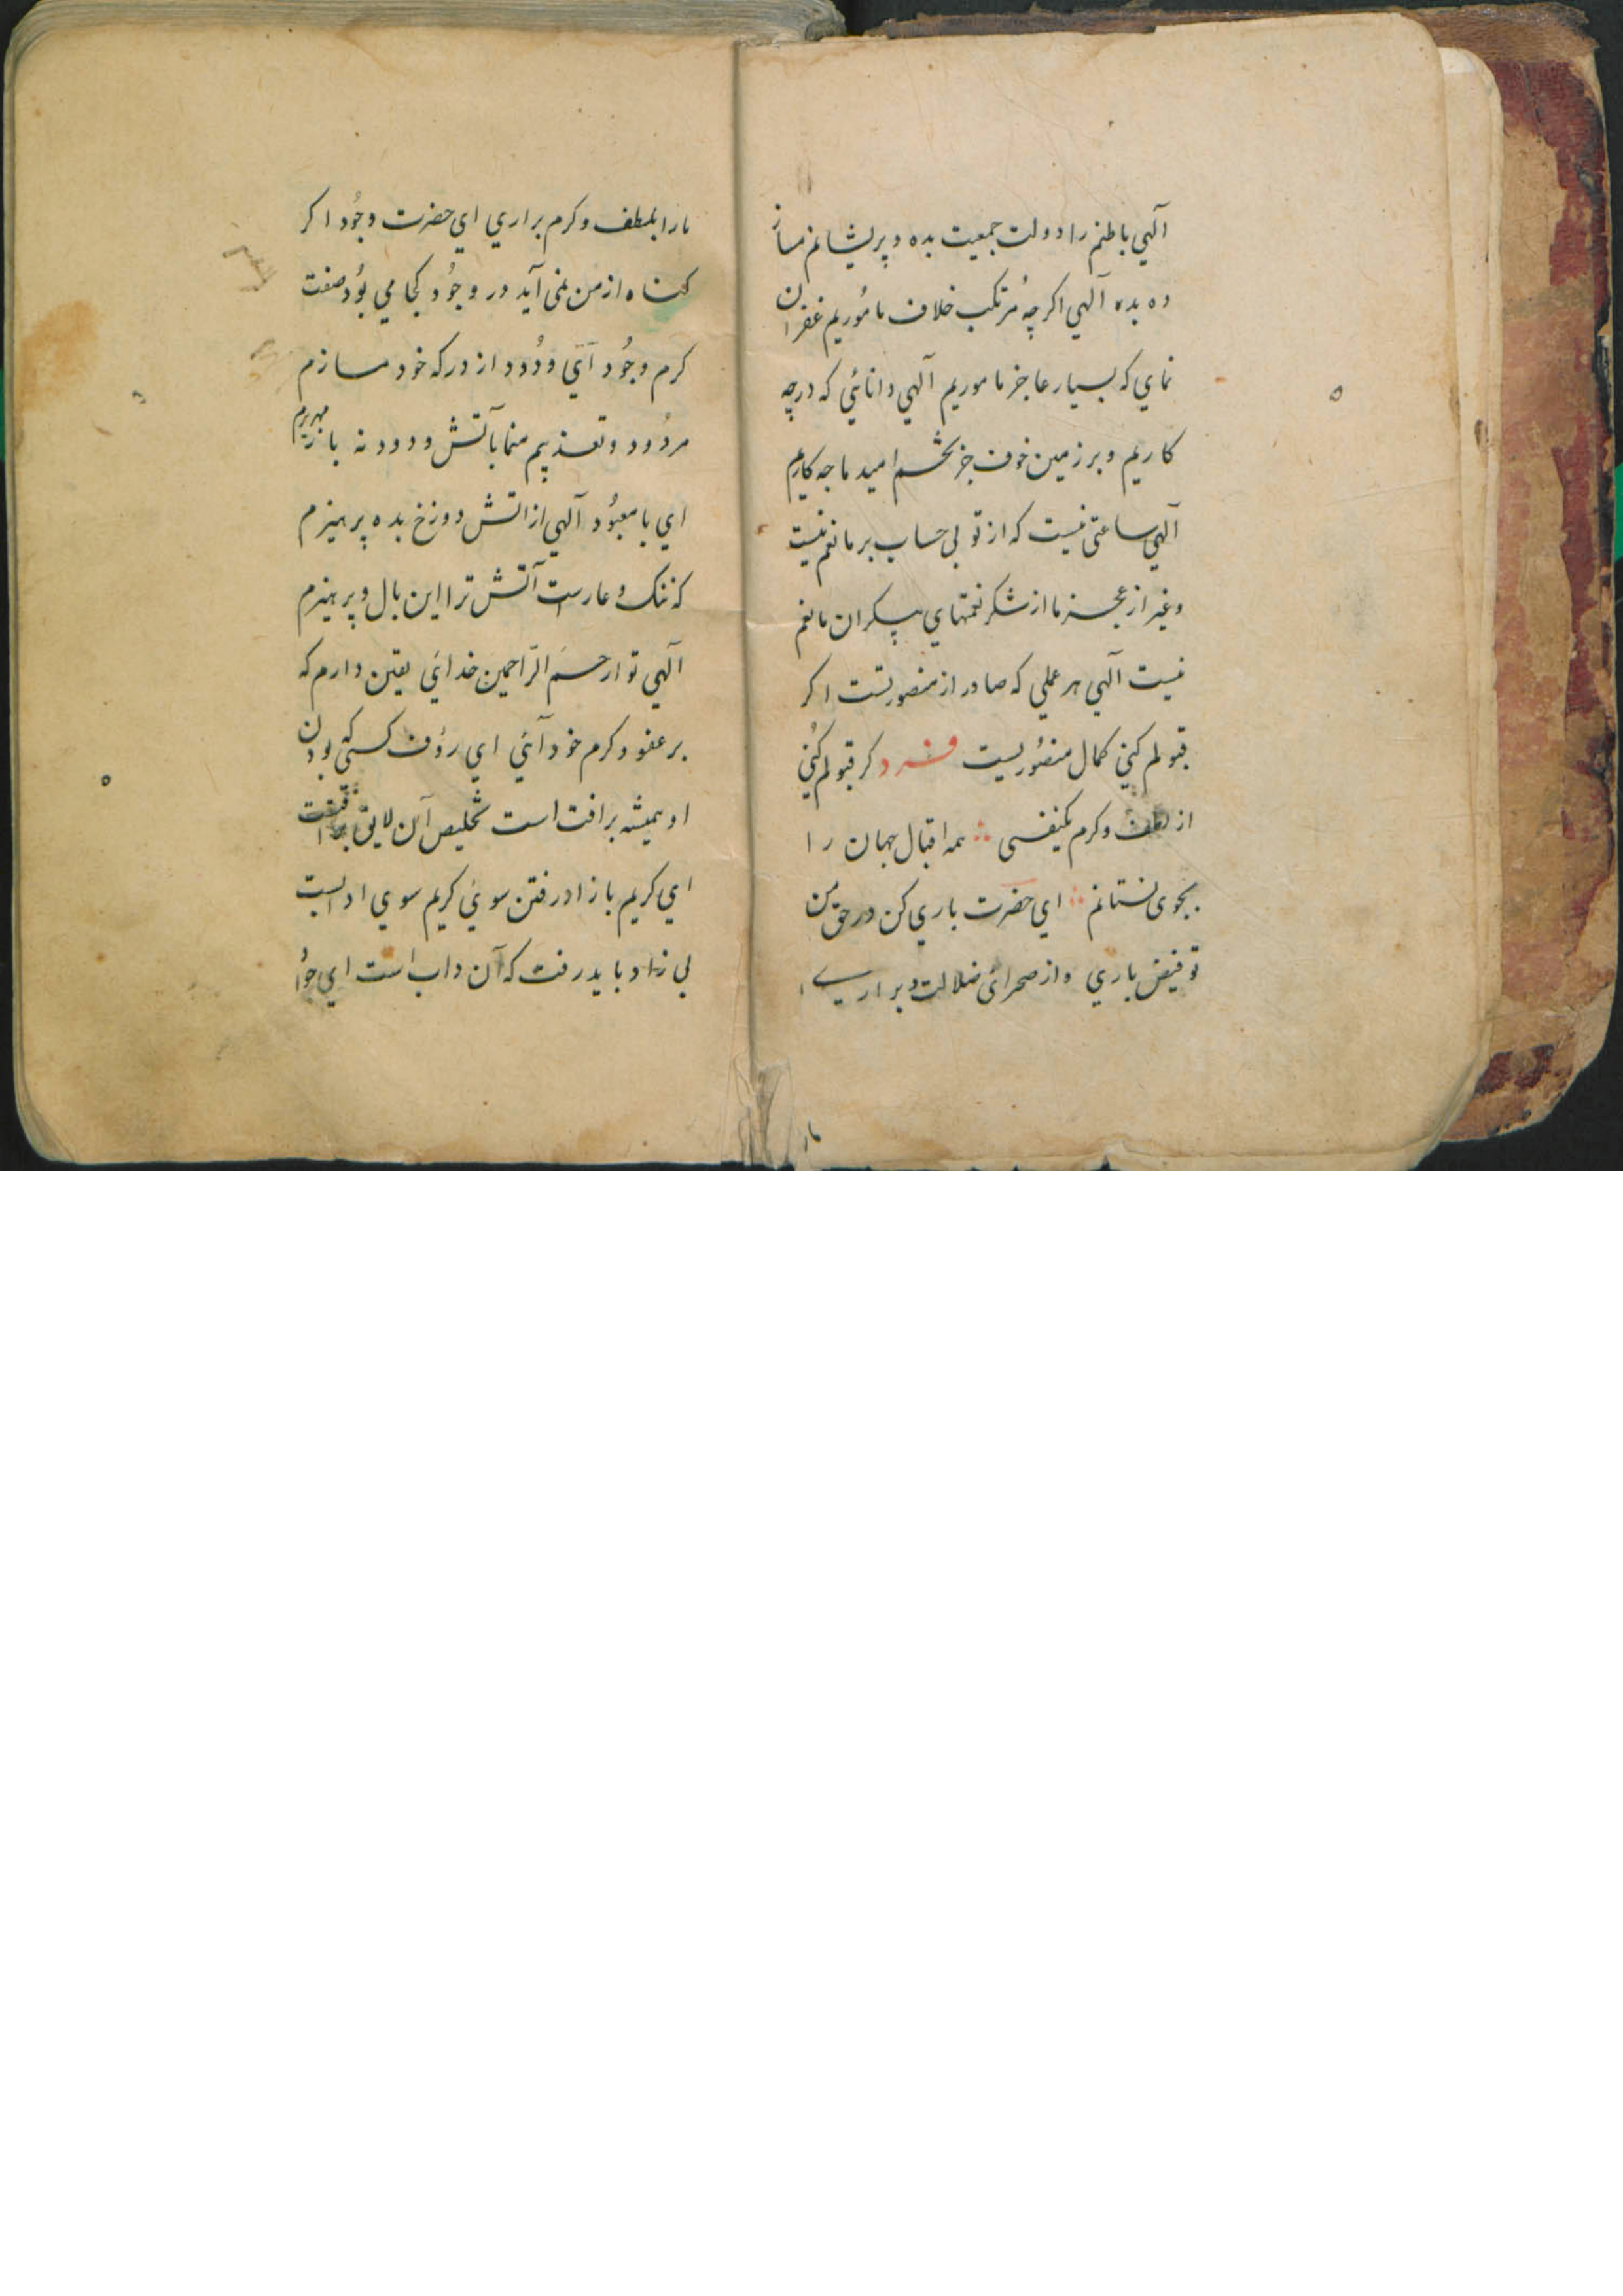 آلهي باطنم را دولت جمعيت بده و پريشانم مساز
ده بده آلهي اكرچه مُرتكب خلاف مامُوريم غفران
نماي كه بسيار عاجز ماموريم آلهي دانائي كه درچه
كاريم و بر زمين خوف جز تخم اميد ما چه كاريم
آلهي ساعتى نيست كه از تو بي حساب بر ما نعم نيست
و غير از عجز ما از شكر نعمتهاي بيكران ما نعم
نيست آلهي هر عملي كه صادر از منصوريست اكر
قبولم كني كمال منصُوريست فرد كر قبولم كُني
از لطف و كرم يكنفسى همه اقبال جهان را
بجوى نستانم اي حضرت باري كن در حق من
توفيض باري و از صحرائ ضلالت و براري
ما را
ما را بلطف و كرم براري اي حضرت وجُود اكر
كناه از من نمى آيد در وجُود كجا مي بوُد صفت
كرم وجُود آئي ودُود از دركه خود مسازم
مردُود و تعذيبم منما بآتش و دود نه باز بهريم
اي با معبُود آلهي از اتش دوزخ بده پرهيزم
كه ننك و عارست آتش ترا اين بال و پر هيزم
آلهي تو ارحمَ الرّاحمين خدائي يقين دارم كه
بر عفو و كرم خود آئي اي رؤف كسى كه بودن
او هميشه برافت است تخليص آن لايق
اي كريم با زاد رفتن سوئ كريم سوي ادبست
بي زاد بايد رفت كه آن داب است اي جوُا